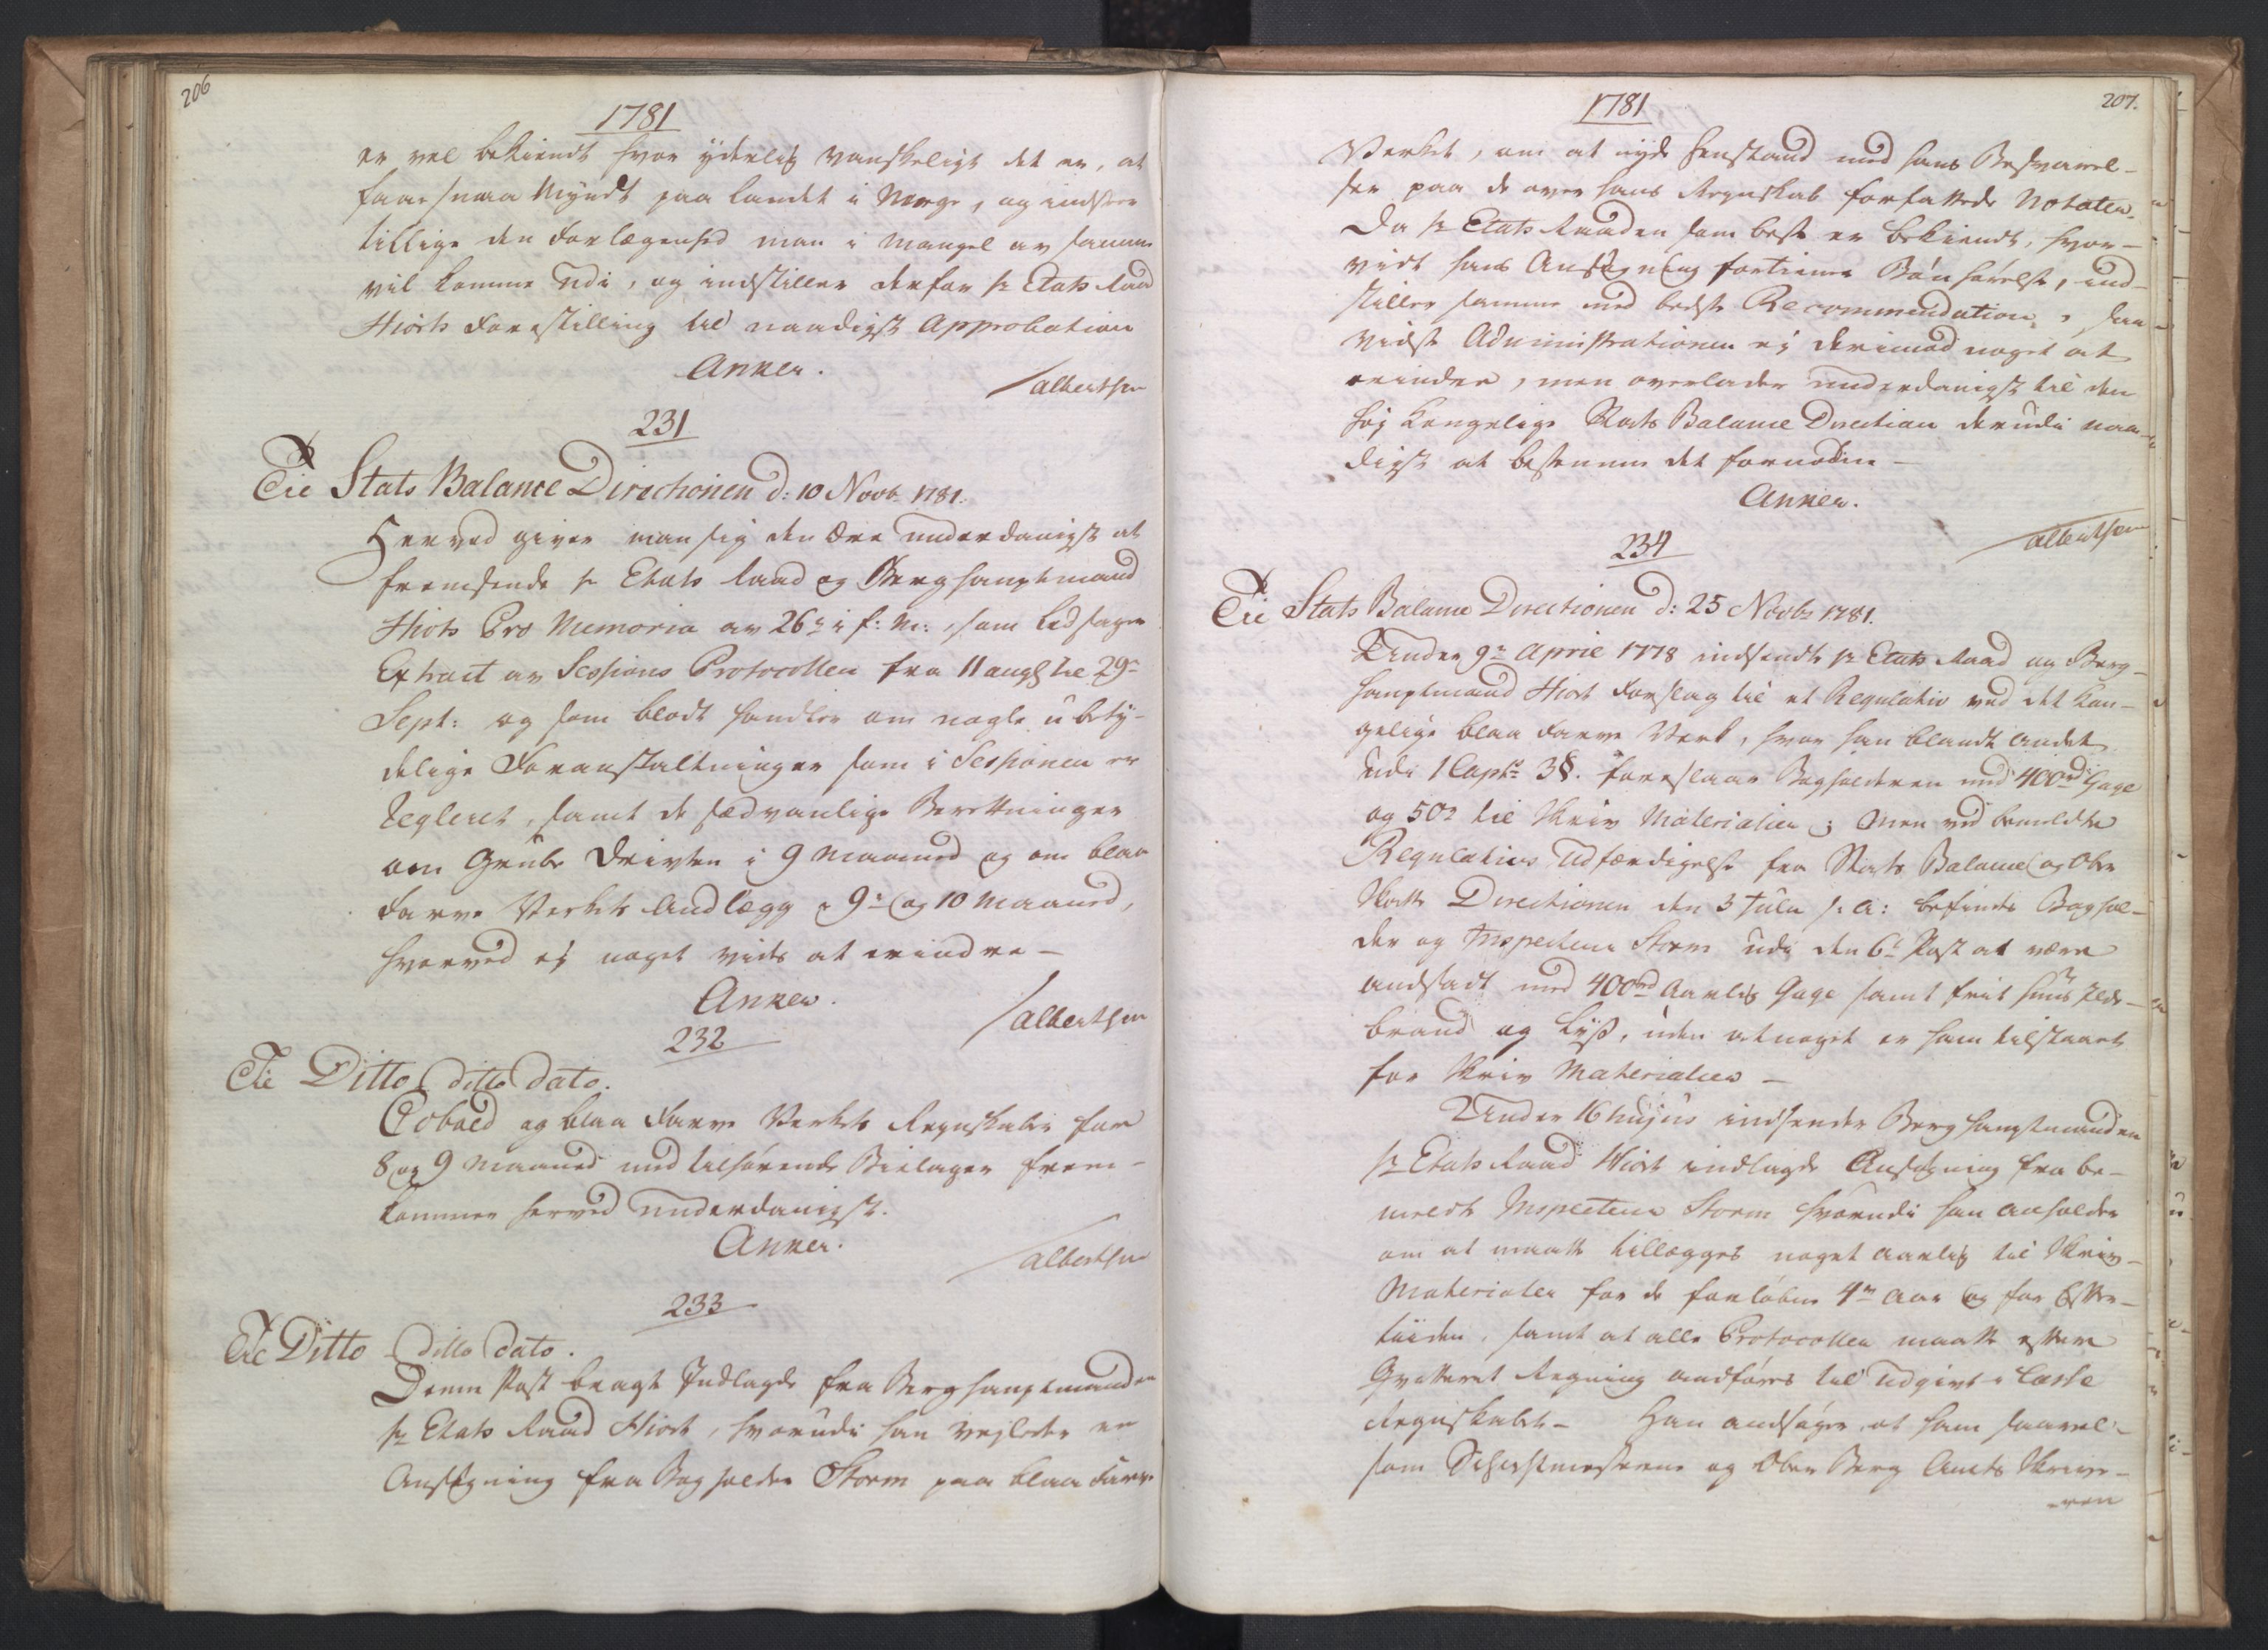 206
1781
er vel bekiendt hvor yderlig vanskeligt det er, at
faae smaa Myndt paa landet i Norge, og indseer
tillige den Forlægenhed man i Mangel av samme
vil komme udi, og indstiller derfor hr Etats Raad
Hiorts Forestilling til naadigst Approbation
Anker.
Albertsen
231
Til Stats Balance Directionen d: 10 Novb 1781.
Herved giver man sig den Ære underdanigst at
fremsende hr Etats Raad og Berghauptmand
Hiorts Pro Memoria av 26de i f: M:, som ledsager
Extract av Sessions Protocollen fra 11 augst til 29de
Sept: og som blodt handler om nogle ubety-
delige Foranstaltninger som i Sessionen er
Regleret, samt de sædvanlige Berettninger
om Grube Driften i 9 Maaned og om blaa
Farve Verkets Andlægg i 9de og 10 Maaned,
hvorved ej noget vides at erindre -
Anker.
Albertsen
232
Til Ditto ditto dato.
Cobold og blaa Farve Verkets Regnskaber for
8 og 9 Maaned med tilhørende Bielager frem-
kommer herved underdanigst.
Anker.
Albertsen
233
Til Ditto ditto dato.
Denne Post bragt Indlagde fra Berghauptmanden
hr Etats Raad Hiort, hvorudi han vejleder en
Ansøgning fra Bogholder Storm paa blaa Farve
207.
1781
Verket, om at nyde henstand med hans Besvarel-
ser paa de over hans Regnskab forfattede Notater.
Da hr Etats Raaden som best er bekiendt, hvor-
vidt hans Ansøgning fortiener Bønhørelse, ind-
stiller samme med beste Recommendation, saa
vidste Administrationen ej derimod noget at
erindre, men overlader underdanigst til den
høj Kongelige Stats Balance Direction derudi naa-
digst at bestemme det fornødne -
Anker.
Albertsen
234
Til Stats Balance Directionen d: 25 Novbr 1781.
Under 9de April 1778 indsendte hr Etats Raad og Berg-
hauptmand Hiort Forslag til et Regulativ ved det Kon-
gelige blaa Farve Verk, hvor han blandt andet
udi 1 Capt: 3§. foreslaaer Bogholderen med 400rd Gage
og 50r til Skriv Materialier; Men ved bemeldte
Regulativs Udfærdigelse fra Stats Balance og Over
Skatte Directionen den 3 Julii s: a: befindes Boghol-
der og Inspecteur Storm udi den 6te Post at være
andsadt med 400rd Aarlig Gage samt frit Huus Ilde-
brand og Lyss, uden at noget er ham tilstaaet
for Skriv Materialier -
Under 16 hujus indsender Berghauptmanden
hr Etats Raad Hiort indlagde Ansøgning fra be-
meldte Inspecteur Storm hvorudi han anholder
om at maatte tillægges noget aarlig til Skriv-
Materialer for de forløbne 4re Aar og for Efter-
tiiden, samt at alle Protocoller maatte efter
Qvitteret Regning andføres til Udgivt i Casse
Regnskabet - Han andfører, at ham saavel
som og Over Berg Amts Skriver-
-ren